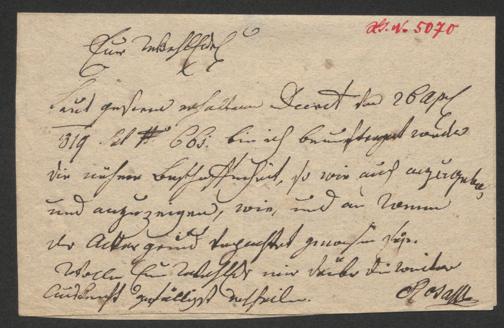 H. I. N. 5070
Euer Wohlgeb
Laut gestern erhaltenem Decret vom 26 Apl
819 Zal # 663: bin ich beauftragt worden
die nähere Beschaffenheit, so wie auch anzugeben,
und anzuzeigen, wie, und an wem
der Acker grund verpachtet gewesen sey.
Wolle Euer Wohlgeb mir darüber die weitere
Auskunft gefälligst ertheilen.